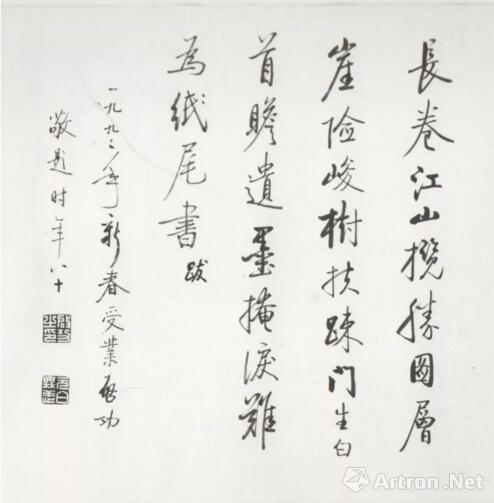 長卷江山攬勝圖層
崖险峻樹扶疎門生白
首瞻遺墨掩淚難
為紙尾書跋
一九九二年新春受業启功
敬题时年八十
雅昌艺术网
Artron.Net